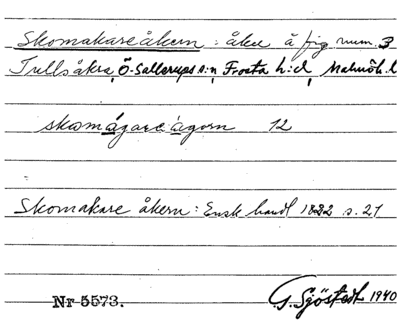 Skomakareåkern: åker å fig num. 3
Trulls åkra, Ö. Sallerups s:n Frosta h:d, Malmöh. l
skom 12
Skomakare åkern: Ensk handl 1882 s. 21
Nr 5573. G. Sjöstedt 1940